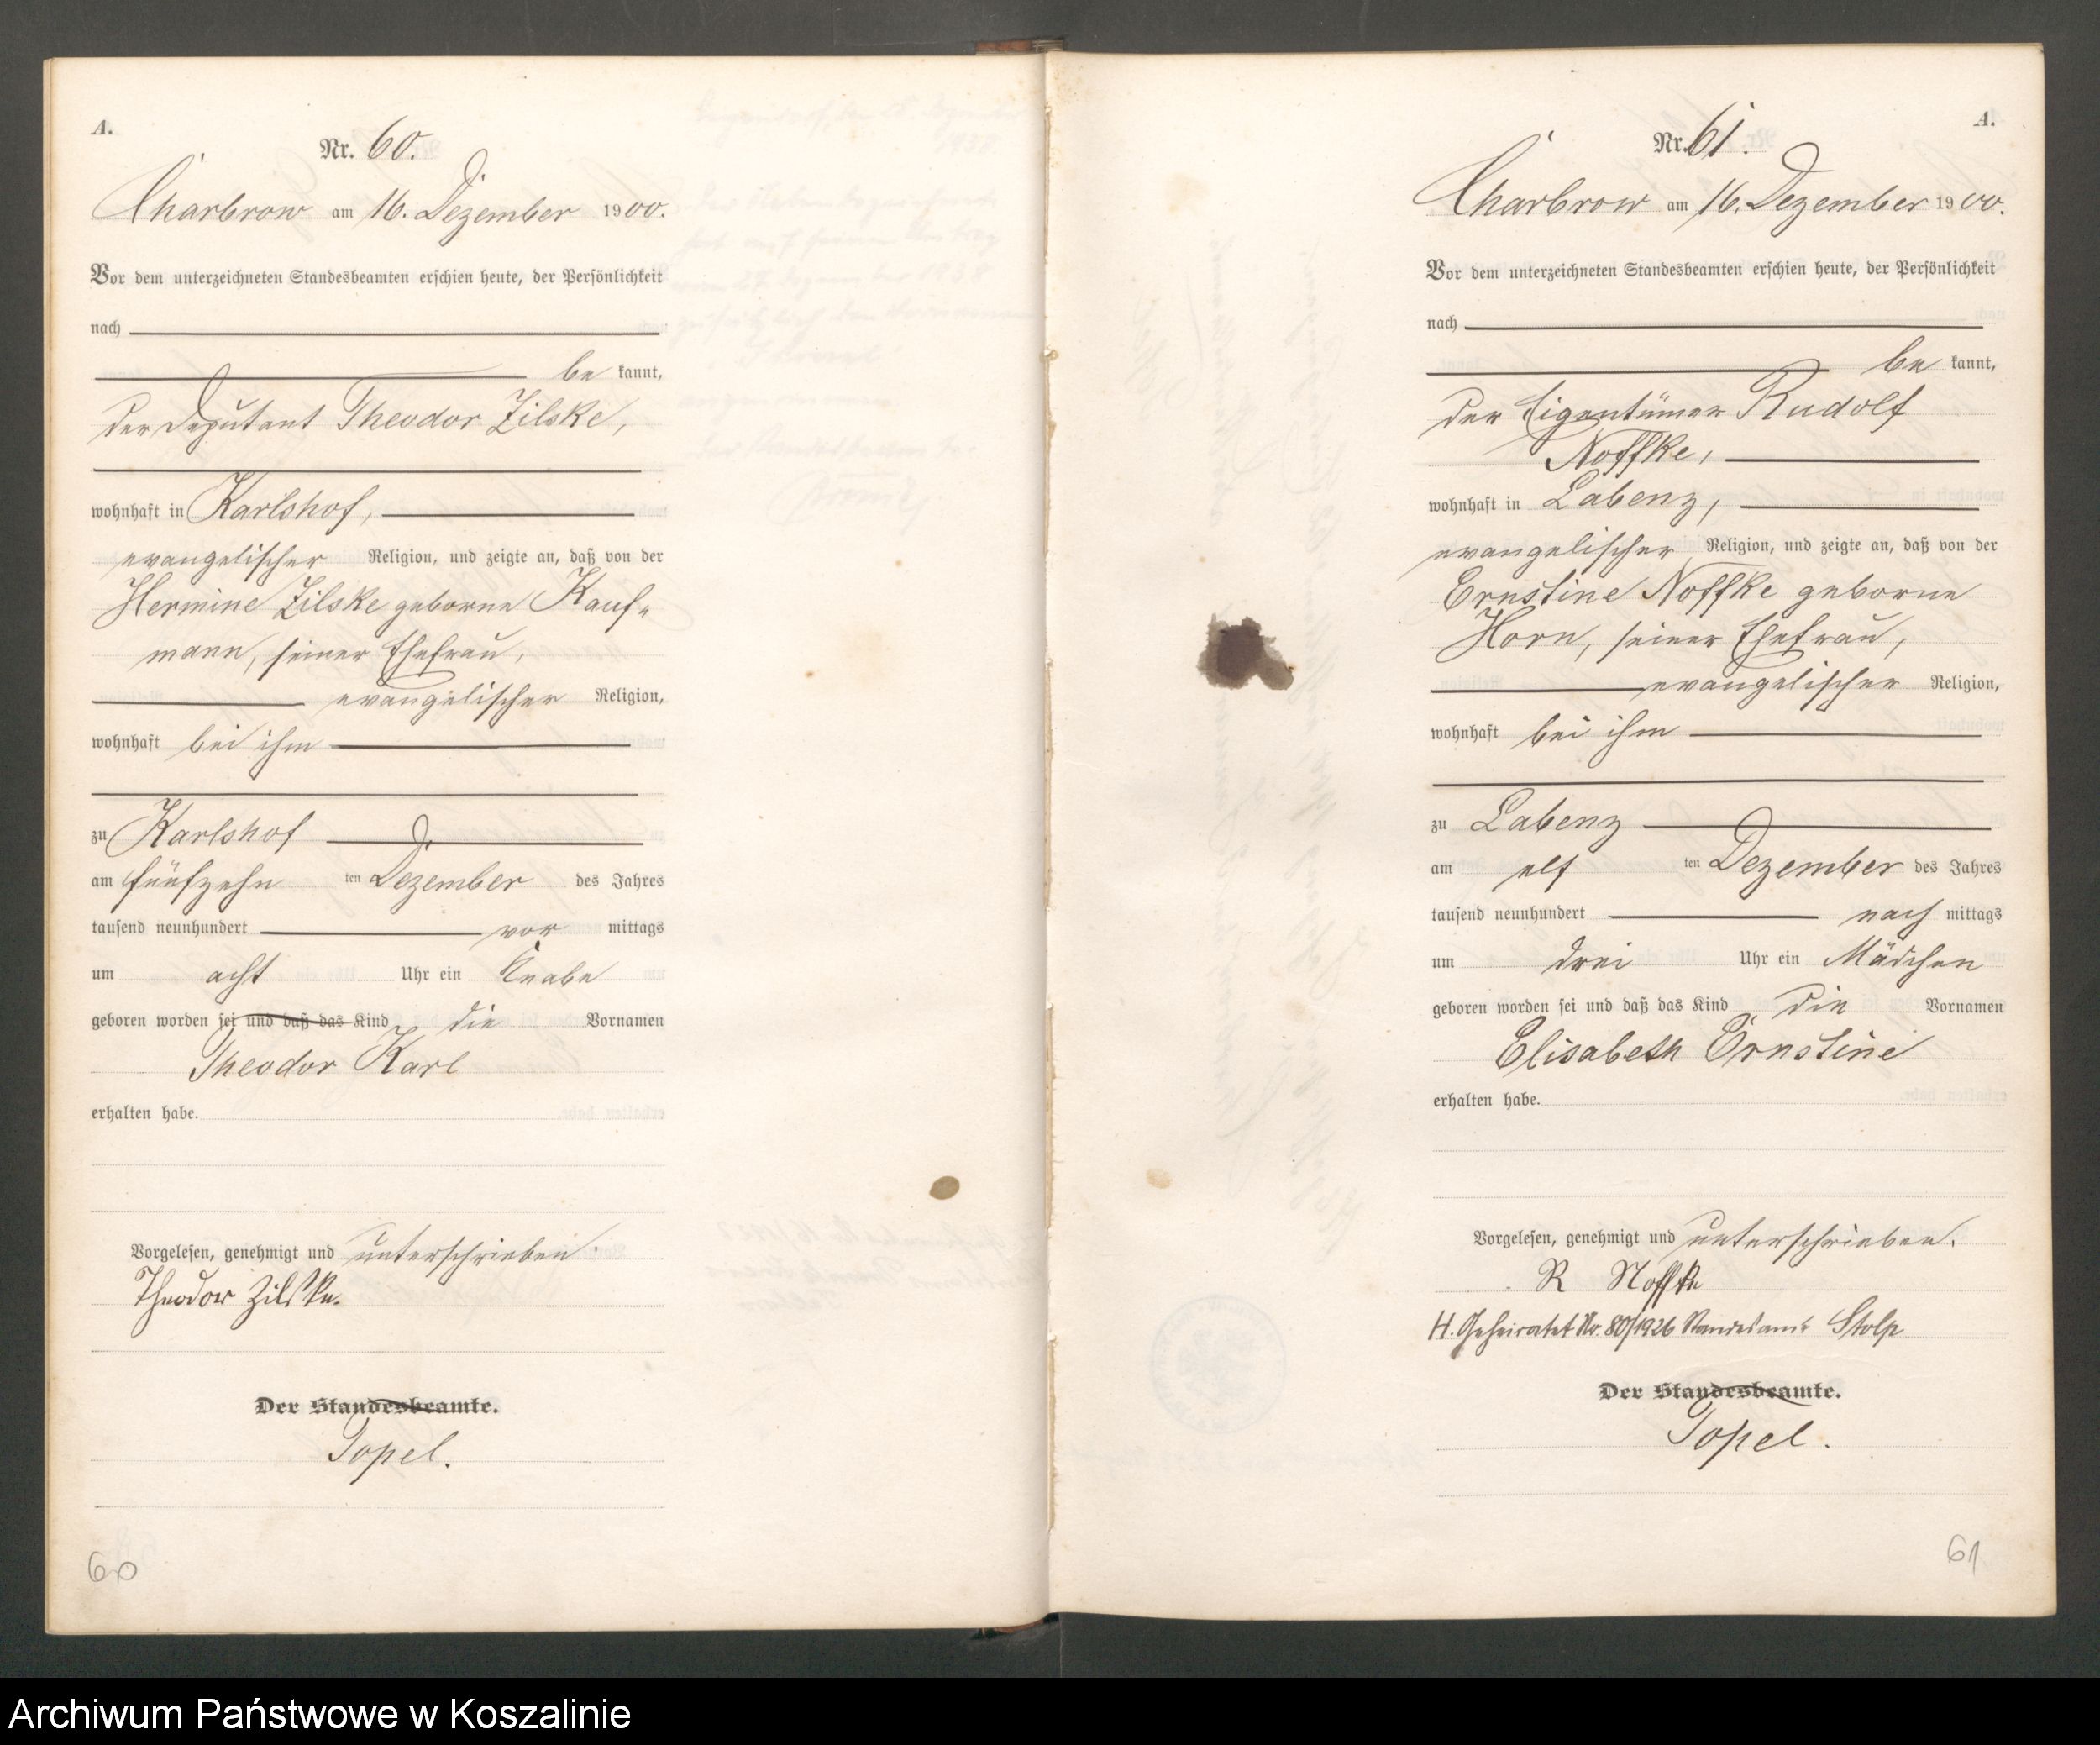 A.
Nr. 60.
Charbrow am 16. Dezember 1900.
Vor dem unterzeichneten Standesbeamten erschien heute, der Persönlichkeit
nach
be kannt,
der Deputant Theodor Zilske,
wohnhaft in Karlshof,
evangelischer Religion, und zeigte an, daß von der
Hermine Zilske geborne Kauf-
mann, seiner Ehefrau,
evangelischer Religion,
wohnhaft bei ihm
zu Karlshof
am fünfzehn ten Dezember des Jahres
tausend neunhundert vor mittags
um acht Uhr ein Knabe
geboren worden sei und daß das Kind die Vornamen
Theodor Karl
erhalten habe.
Vorgelesen, genehmigt und unterschrieben.
Theodor Zilske.
Der Standesbeamte.
Topel.
60
A.
Nr. 61.
Charbrow am 16. Dezember 1900.
Vor dem unterzeichneten Standesbeamten erschien heute, der Persönlichkeit
nach
be kannt,
der Eigentümer Rudolf
Noffke,
wohnhaft in Labenz,
evangelischer Religion, und zeigte an, daß von der
Ernstine Noffke geborne
Horn, seiner Ehefrau,
evangelischer Religion,
wohnhaft bei ihm
zu Labenz
am elf ten Dezember des Jahres
tausend neunhundert nach mittags
um drei Uhr ein Mädchen
geboren worden sei und daß das Kind die Vornamen
Elisabeth Ernstine
erhalten habe.
Vorgelesen, genehmigt und unterschrieben.
R Noffke
H. Geheiratet Nr. 80/1926 Standesamt Stolp
Der Standesbeamte.
Topel.
61
Archiwum Państwowe w Koszalinie